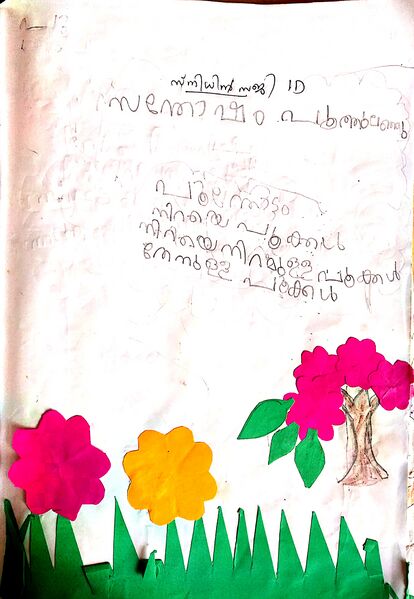 സ്നിധിൻ സജി 1D
സന്തോഷം പൂത്തുലഞ്ഞു
പൂന്തോട്ടം
നിറയെ പൂക്കൾ
നിറിയെ നിറമുള്ള പൂക്കൾ
തേനുള്ള പൂക്കൾ